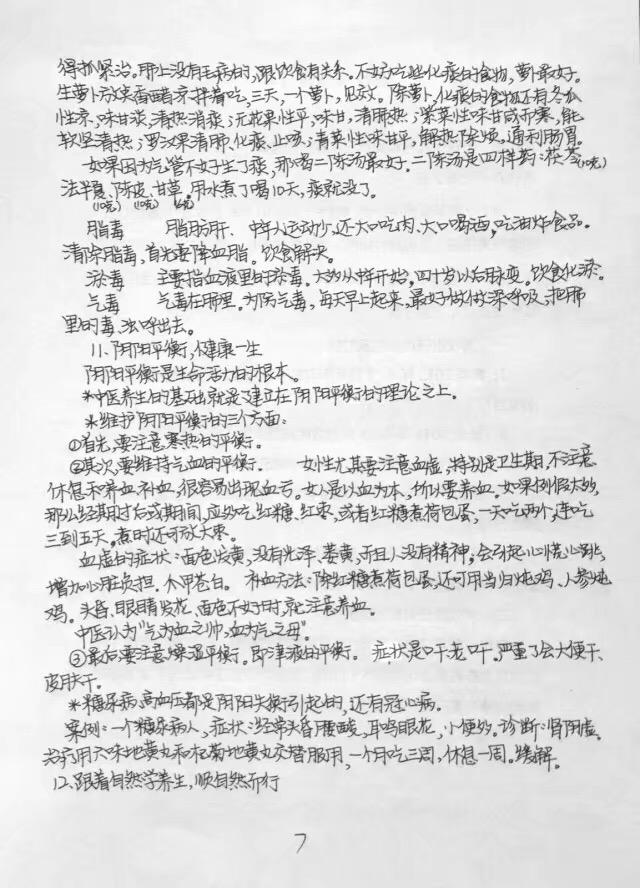 得抓紧治。肺上没有毛病的,跟饮食有关系。不妨吃些化痰的食物,萝卜最好。
生萝卜放姜面醋凉拌着吃,三天,一个萝卜,见效。除萝卜,化痰的食物还有冬瓜
性凉,味甘淡,清热消痰;无花果性平,味甘,清肺热;紫菜性味甘咸而寒,能
软坚清热;罗汉果清肺,化痰、止咳;青菜性味甘平,解热除烦,通利肠胃。
如果因为气管不好生了痰,那喝二陈汤最好。二陈汤是四样药:茯苓(10克)
法半夏、陈皮、甘草。用水煮了喝10天,痰就没了。
(10克) (10克) (6克)
脂毒 脂肪肝、中年人运动少,还大口吃肉、大口喝酒,吃油炸食品。
清除脂毒,首先要降血脂。饮食解决。
淤毒 主要指血液里的淤毒。大约从中年开始,四十岁以后用脉变。饮食化淤。
气毒 气毒在肺里。为防气毒,每天早上起来,最好做做深呼吸,把肺
里的毒、浊呼出去。
11、阴阳平衡,健康一生
阴阳平衡是生命活力的根本。
*中医养生的基础就是建立在阴阳平衡的理论之上。
*维护阴阳平衡的三个方面:
①首先,要注意寒热的平衡。
②其次,要维持气血的平衡。 女性尤其要注意血虚,特别是卫生期,不注意
休息和养血、补血,很容易出现血亏。女人是以血为本,所以要养血。如果例假太多,
那么经期过后或期间,应多吃红糖、红枣,或者红糖煮荷包蛋,一天吃两个,连吃
三到五天。煮时还可放大枣。
血虚的症状:面色发黄,没有光泽、萎黄,而且人没有精神;会引起心慌心跳,
增加心脏负担。木甲苍白。 补血方法:除红糖煮荷包蛋,还可用当归炖鸡、人参炖
鸡。头昏、眼睛发花、面色不好时,就注意养血。
中医认为“气为血之帅,血为气之母”。
③最后,要注意燥湿平衡。即津液的平衡。 症状是口干舌干,严重了会大便干、
皮肤干。
*糖尿病、高血压都是阴阳失衡引起的,还有冠心病。
案例:一个糖尿病人,症状:经常头昏腰酸,耳鸣眼花,小便多。诊断:肾阴虚。
治疗用六味地黄丸和杞菊地黄丸交替服用,一个月吃三周,休息一周。缓解。
12、跟着自然学养生,顺自然而行
7